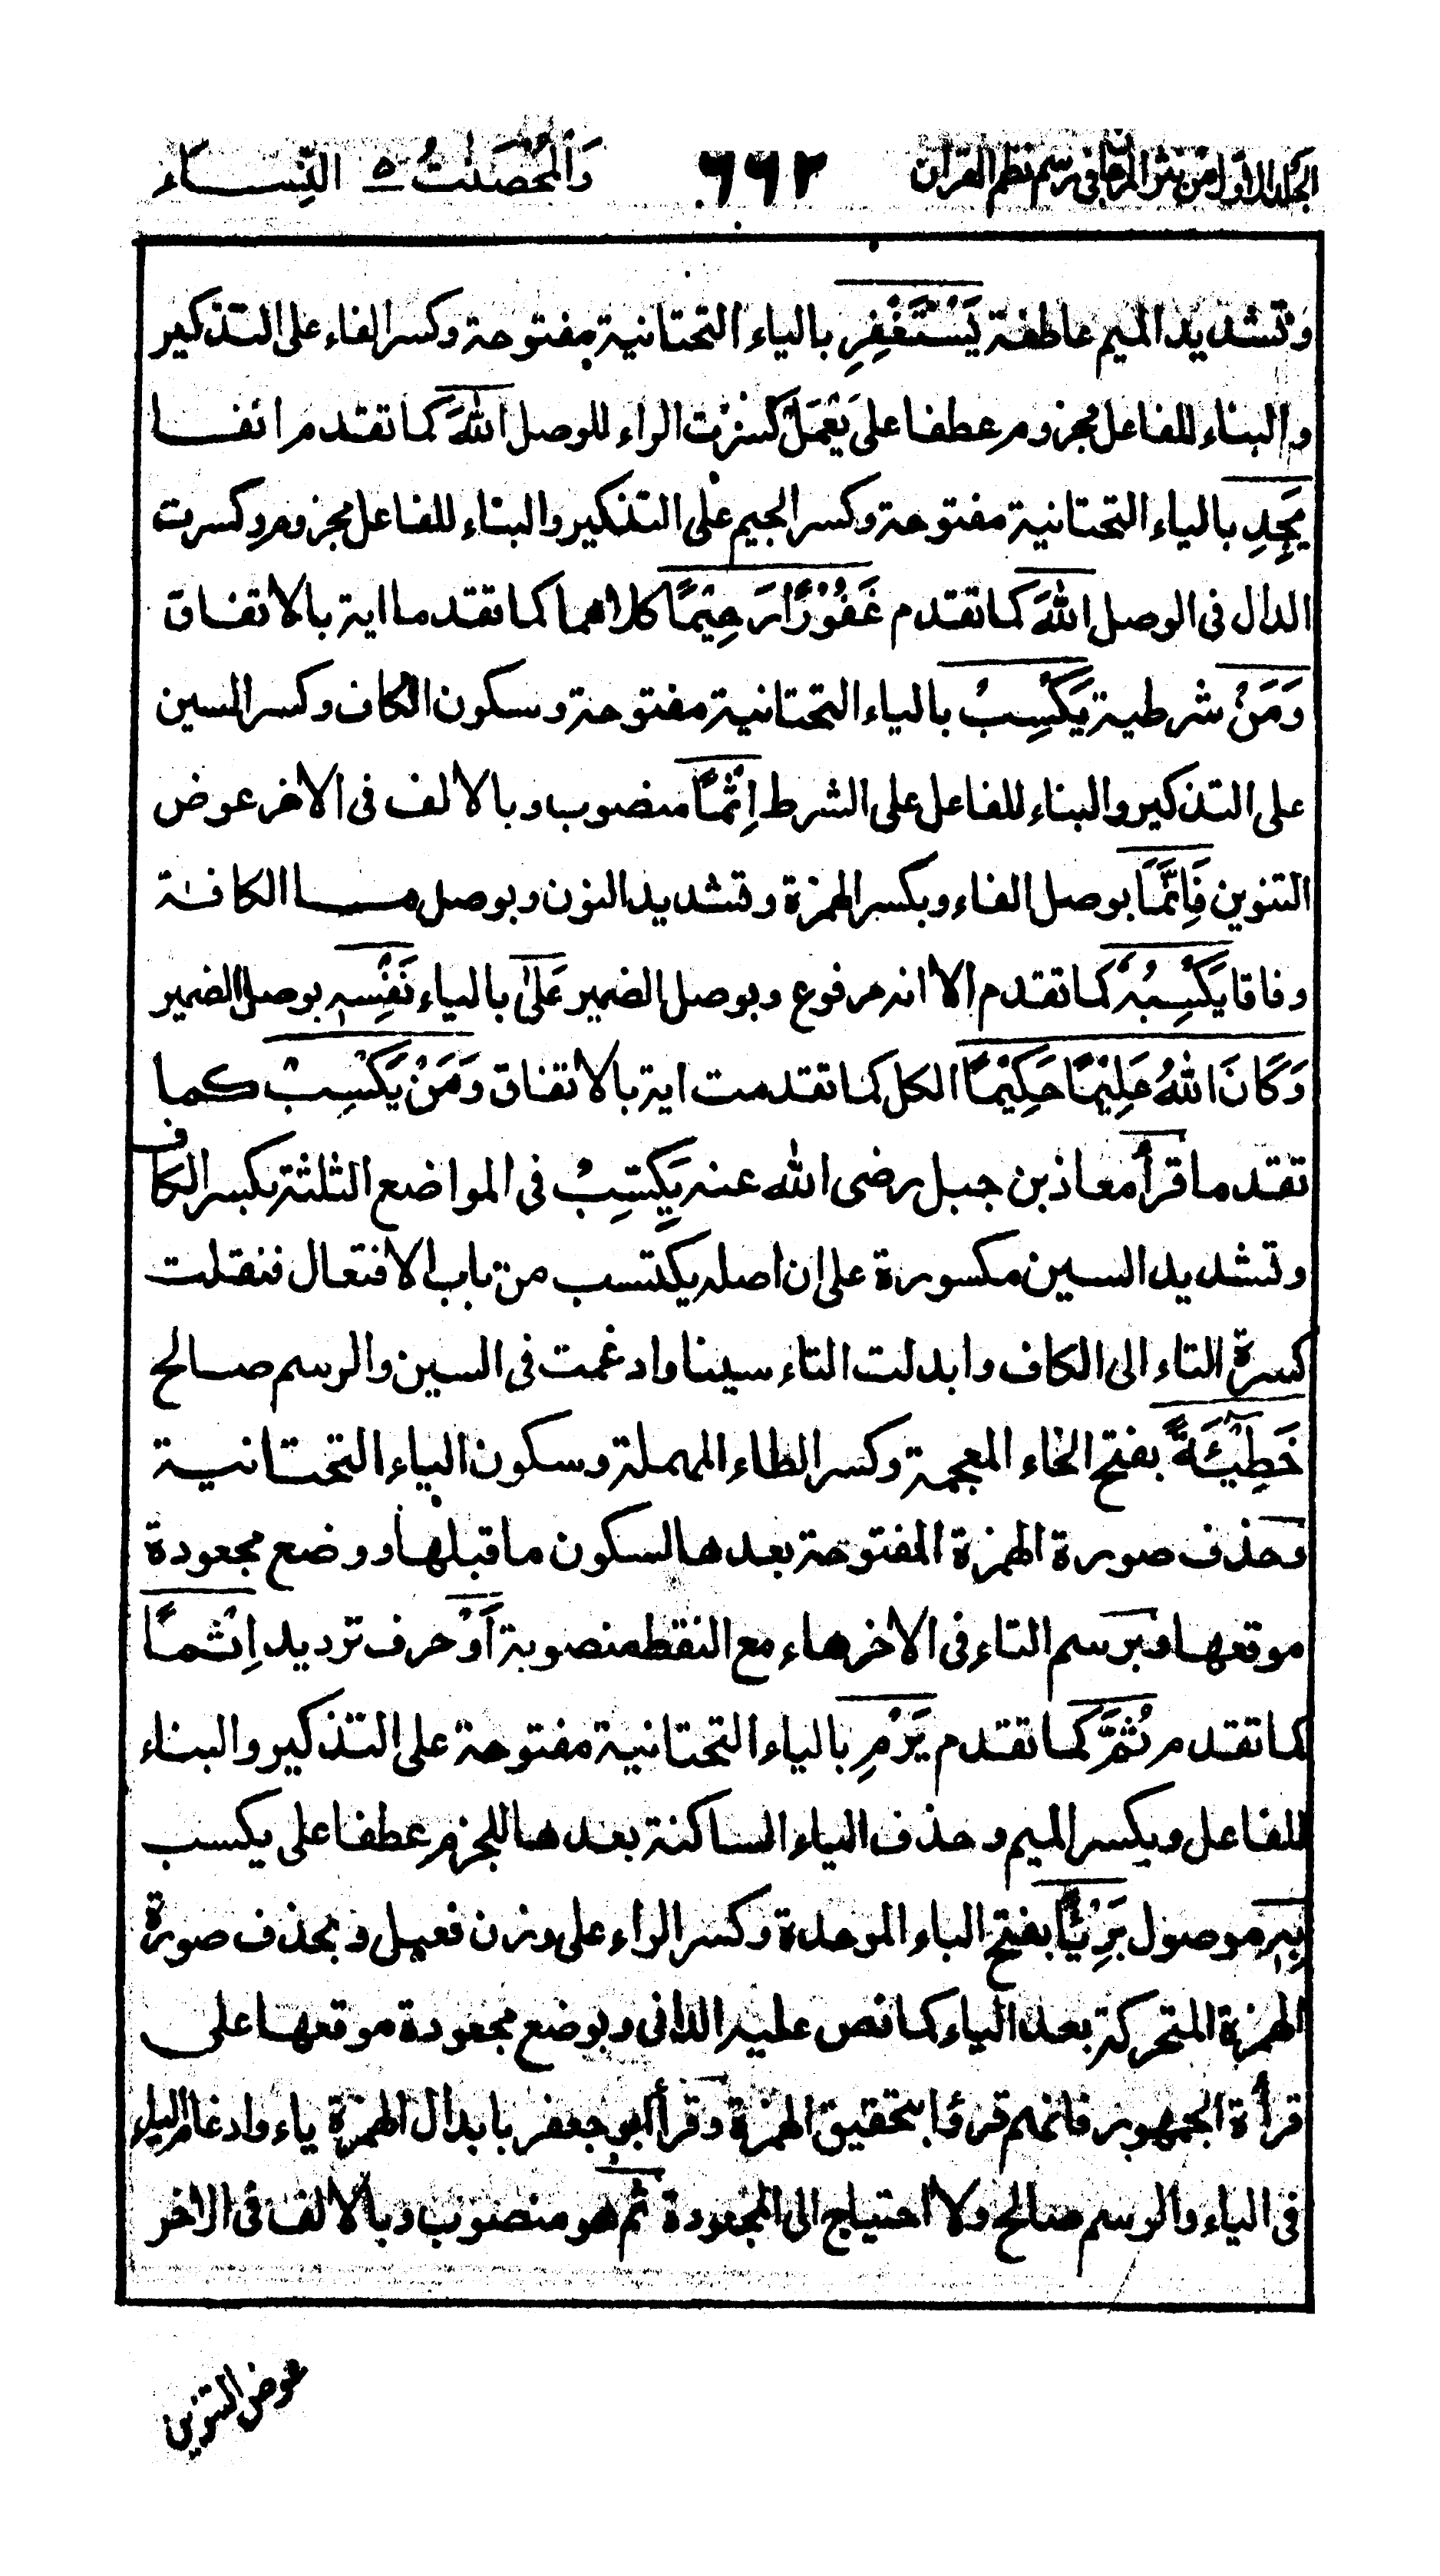 الجلد الاول من نثر المرجان فى رسم نظم القران ٦٦٢ وَالْمُحْصَنٰتُ ٥ النِّسَاء
وتشديد الميم عاطفة يَسْتَغْفِرِ بالياء التحتانية مفتوحة وكسر الفاء على التذكير
والبناء للفاعل مجزوم عطفا على يَعْمَلْ كسرت الراء للوصل اللهَ كما تقدم انفا
يَجِدِ بالياء التحتانية مفتوحة وكسر الجيم على التذكير والبناء للفاعل مجزوم كسرت
الدال فى الوصل اللهَ كما تقدم غَفُوْرًا رَحِيْمًا كلاهما كما تقدما اية بالاتفاق
وَمَنْ شرطية يَكْسِبْ بالياء التحتانية مفتوحة وسكون الكاف وكسر السين
على التذكير والبناء للفاعل على الشرط اِثْمًا منصوب وبالالف فى الاخر عوض
التنوين فَاِنَّمَا بوصل الفاء وبكسر الهمزة وتشديد النون وبوصل ما الكافة
وفاقا يَكْسِبُهٗ كما تقدم الا انه مرفوع وبوصل الضمير عَلٰى بالياء نَفْسِهٖ بوصل الضمير
وَكَانَ اللهُ عَلِيْمًا حَكِيْمًا الكل كما تقدمت اية بالاتفاق وَمَنْ يَكْسِبْ كما
تقدما قرأ معاذ بن جبل رضى الله عنه يَكِسِّبْ فى المواضع الثلثة بكسر الكاف
وتشديد السين مكسورة على ان اصله يكتسب من باب الافتعال فنقلت
كسرة التاء الى الكاف وابدلت التاء سينا وادغمت فى السين والرسم صالح
خَطِيْئَةً بفتح الخاء المعجمة وكسر الطاء المهملة وسكون الياء التحتانية
وحذف صورة الهمزة المفتوحة بعدها لسكون ما قبلها ووضع مجعودة
موقعها وبرسم التاء فى الاخر هاء مع النقط منصوبة اَوْ حرف ترديد اِثْمًا
كما تقدم ثُمَّ كما تقدم يَرْمِ بالياء التحتانية مفتوحة على التذكير والبناء
للفاعل وبكسر الميم وحذف الياء الساكنة بعدها للجزم عطفا على يكسب
بِهٖ موصول بَرِيْئًا بفتح الباء الموحدة وكسر الراء على وزن فعيل وبحذف صورة
الهمزة المتحركة بعد الياء كما نص عليه الدانى وبوضع مجعودة موقعها على
قرأة الجمهور فانهم قرؤا بتحقيق الهمزة وقرأ ابو جعفر بابدال الهمزة ياء وادغام الياء
فى الياء والرسم صالح ولا احتياج الى المجعودة ثم هو منصوب وبالالف فى الاخر
عوض التنوين